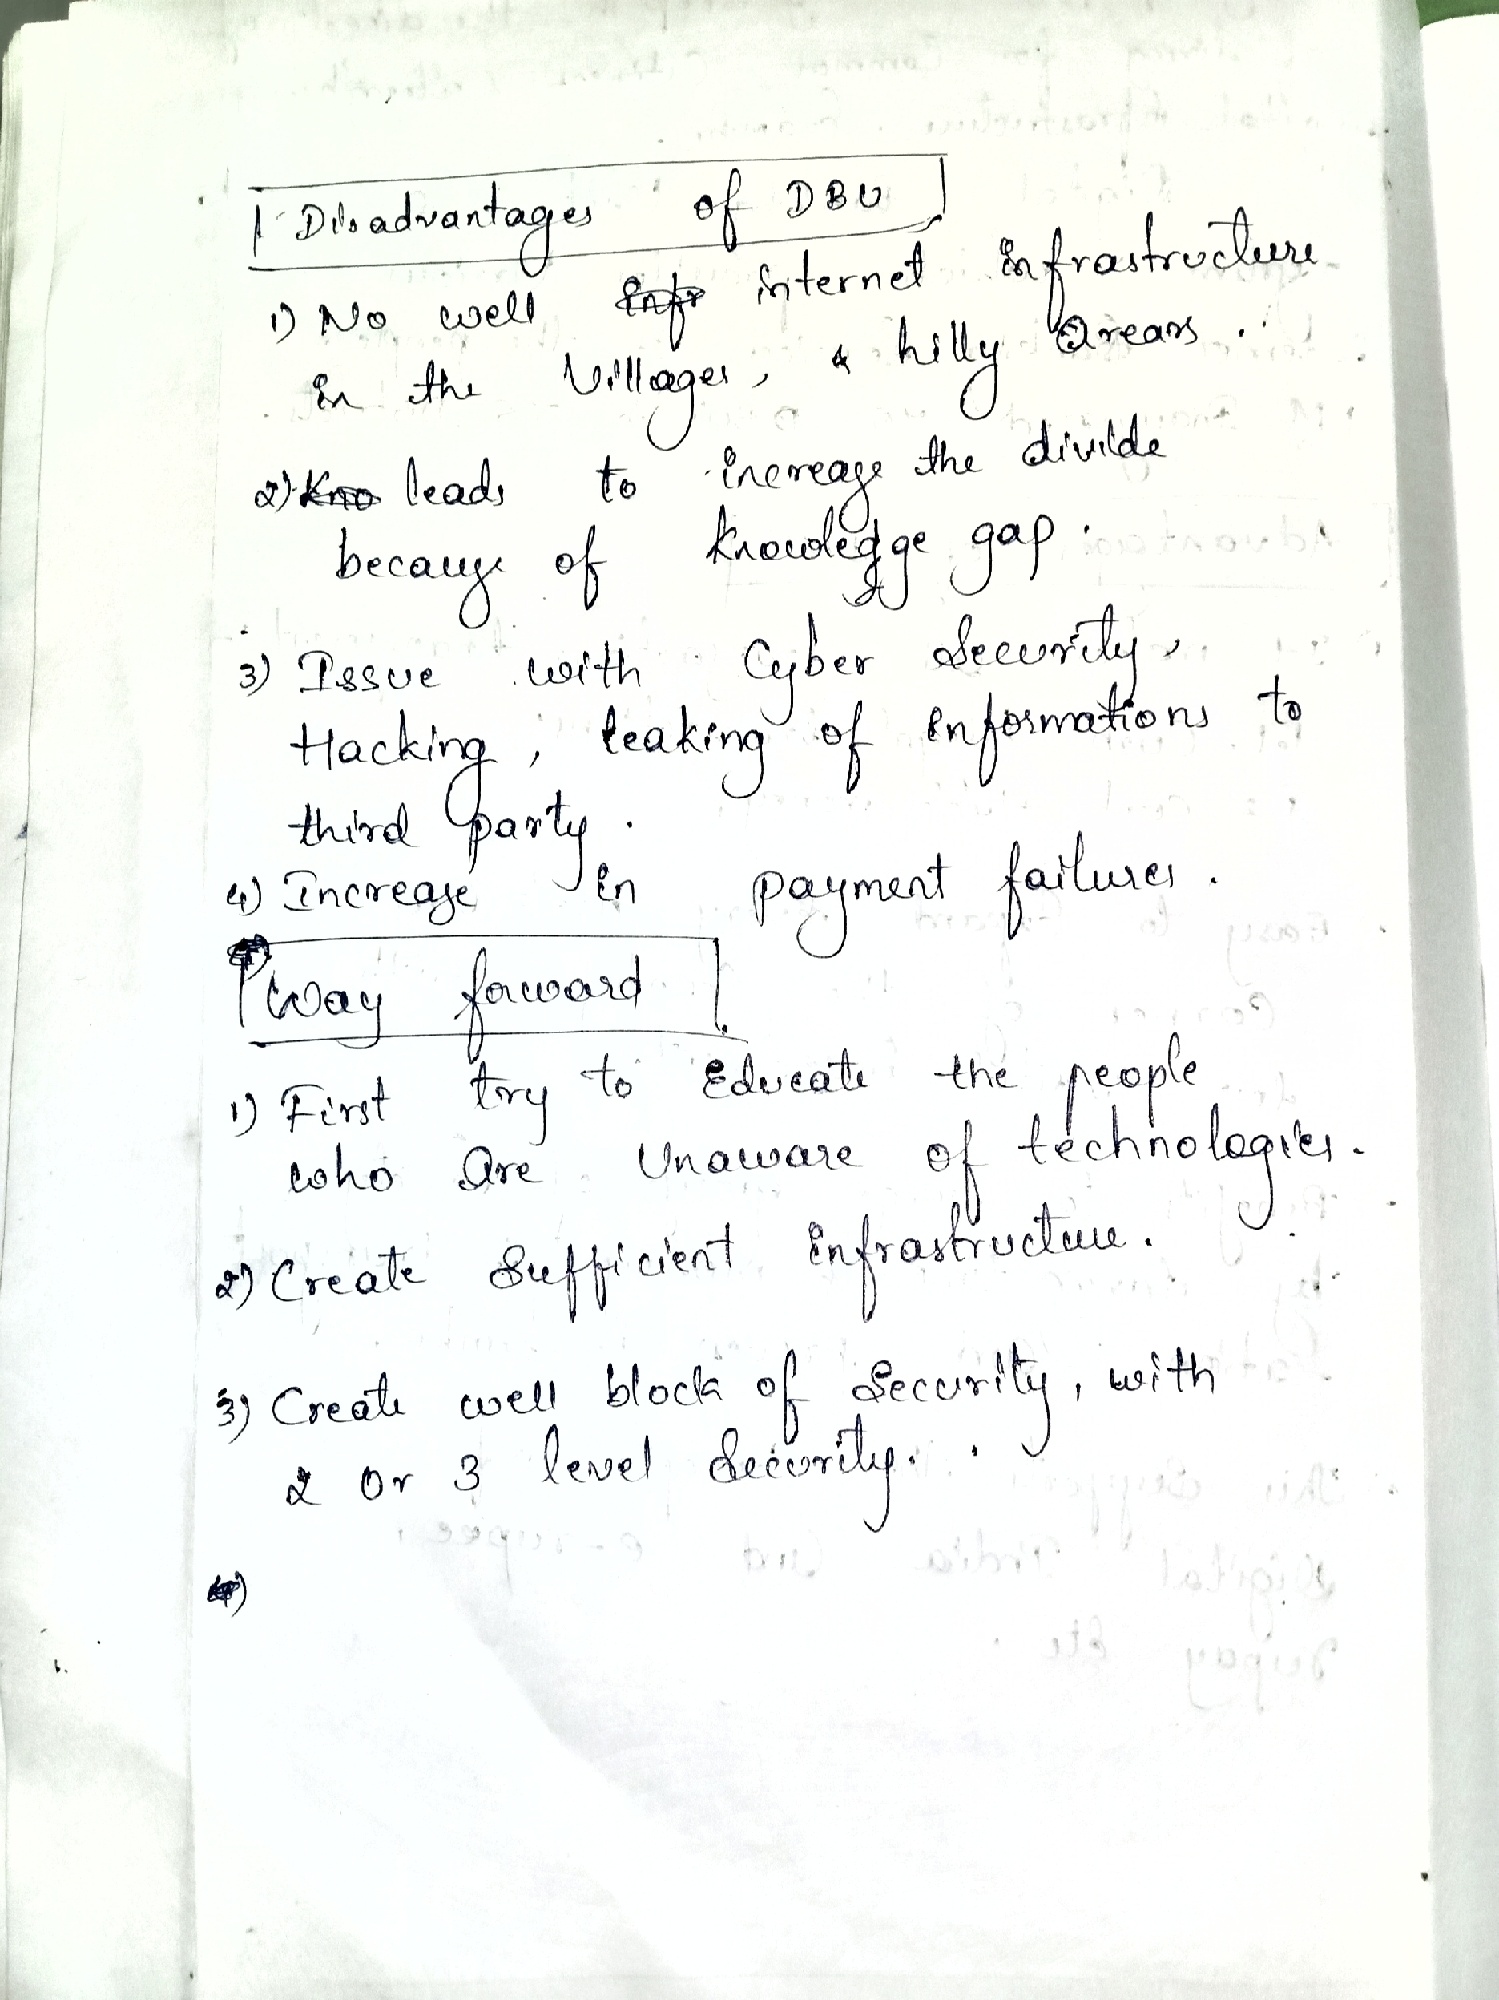 Disadvantages of DBU
1) No well internet infrastructure
in the Villages, & hilly areas.
2) leads to increase the divilde
because of knowledge gap.
3) Issue with Cyber Security,
Hacking, leaking of informations to
third party.
4) Increase in payment failures.
Way forward
1) First try to Educate the people
who are Unaware of technologies.
2) Create Sufficient infrastructure.
3) Create well block of Security, with
2 or 3 level Security.